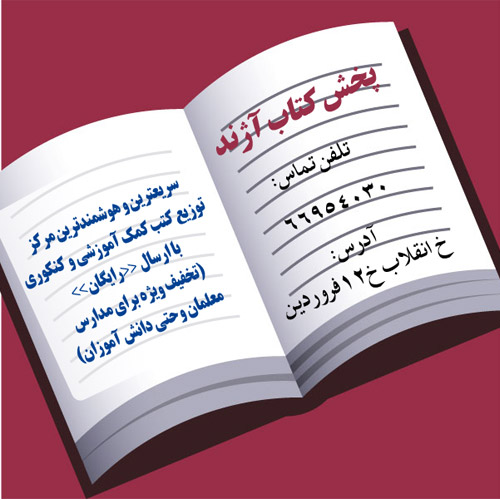 پخش کتاب آژند
تلفن تماس:
۶۶۹۵٤۰۳۰
آدرس:
خ انقلاب خ ۱۲ فروردین
سریعترین و هوشمندترین مرکز
توزیع کتب کمک آموزشی و کنکوری
با ارسال <<رایگان>>
(تخفیف ویژه برای مدارس
معلمان و حتی دانش آموزان)